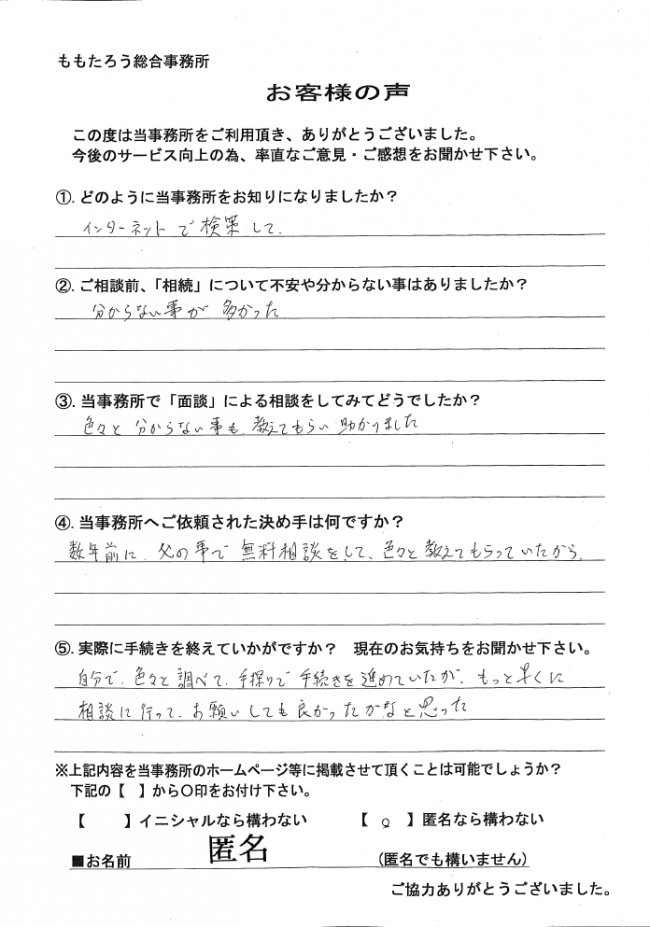 ももたろう総合事務所
お客様の声
この度は当事務所をご利用頂き、ありがとうございました。
今後のサービス向上の為、率直なご意見・ご感想をお聞かせ下さい。
①. どのように当事務所をお知りになりましたか？
インターネットで検索して.
②. ご相談前、「相続」について不安や分からない事はありましたか？
分からない事が多かった
③. 当事務所で「面談」による相談をしてみてどうでしたか？
色々と分からない事も、教えてもらい助かりました
④. 当事務所へご依頼された決め手は何ですか？
数年前に、父の事で無料相談をして、色々と教えてもらっていたから.
⑤. 実際に手続きを終えていかがですか？　現在のお気持ちをお聞かせ下さい。
自分で、色々と調べて、手探りで手続きを進めていたが、もっと早くに
相談に行って、お願いしても良かったかなと思った
※上記内容を当事務所のホームページ等に掲載させて頂くことは可能でしょうか？
下記の【　】から〇印をお付け下さい。
【　　】イニシャルなら構わない　　【 〇 】匿名なら構わない
■お名前　匿名　(匿名でも構いません)
ご協力ありがとうございました。